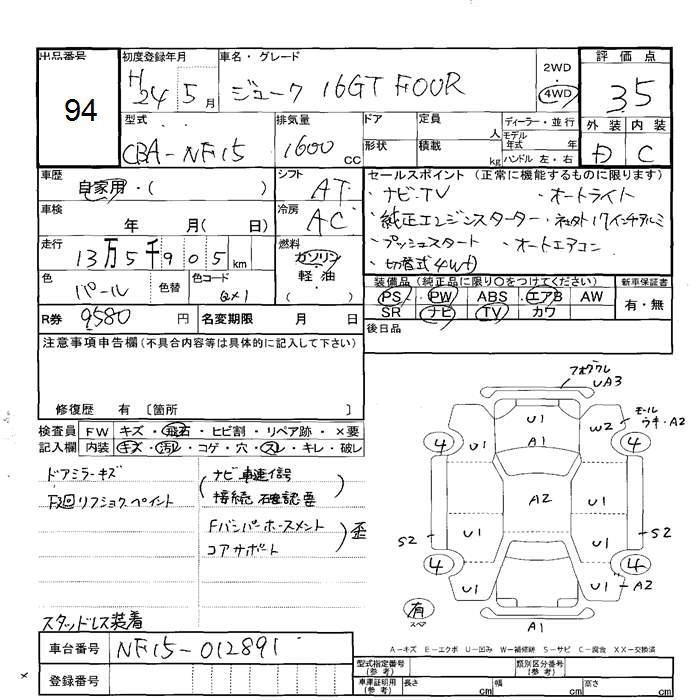 出品番号 初度登録年月 車名・グレード 評価点
94 H24 5月 ジューク 16GT FOUR 2WD 4WD 3.5
型式 排気量 ドア 定員 人 ディーラー・並行 外装 内装
CBA-NF15 1600cc 形状 積載 kg モデル年式 年 ハンドル 左・右 D C
車歴 自家用・( ) シフト AT セールスポイント (正常に機能するものに限ります)
・ナビ・TV ・オートライト
車検 年 月( 日) 冷房 AC ・純正エンジンスターター ・純正17インチアルミ
走行 13万5千905km 燃料 ガソリン ・プッシュスタート ・オートエアコン
軽・油 ・切替式4WD
色 パール 色替 色コード QX1 ( ) 装備品 (純正品に限り○をつけてください) 新車保証書
PS PW ABS エアB AW 有・無
SR ナビ TV カワ
R券 9580円 名変期限 月 日 後日品
注意事項申告欄 (不具合内容等は具体的に記入して下さい)
修復歴 有 〔箇所
検査員記入欄 FW キズ・飛石・ヒビ割・リペア跡・×要
内装 キズ・汚れ・コゲ・穴・スレ・キレ・破レ
ドアミラーキズ ナビ車速信号
F廻リフショクペイント 接続 確認要
Fバンパーホースメント
コアサポート 歪
スタッドレス装着
フォグワレ UA3
U1
A1
モール ウキ・A2
W2
4 U1 4
A2
U1
S2 U1 U1 S2
4 U1 U1 4
A2
有 スペア
A1
A-キズ E-エクボ U-凹み W-補修跡 S-サビ C-腐食 XX-交換済
車台番号 NF15-012891
登録番号
型式指定番号 (参考) 類別区分番号 (参考)
車庫証明用 (参考) 長さ cm 幅 cm 高さ cm